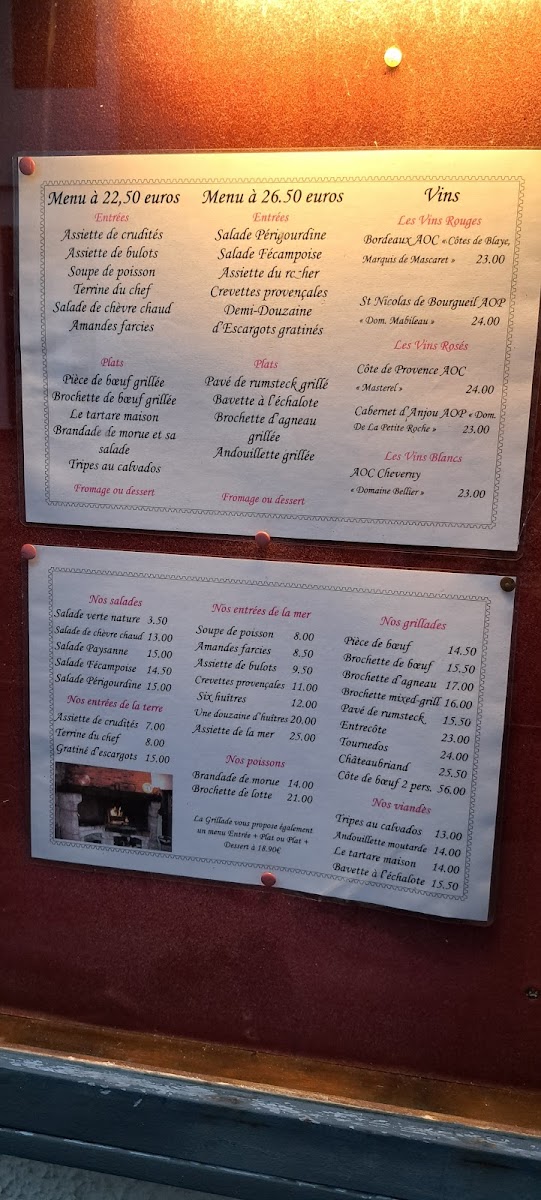 Menu à 22,50 euros
Entrées
Assiette de crudités
Assiette de bulots
Soupe de poisson
Terrine du chef
Salade de chèvre chaud
Amandes farcies
Plats
Pièce de bœuf grillée
Brochette de bœuf grillée
Le tartare maison
Brandade de morue et sa
salade
Tripes au calvados
Fromage ou dessert
Menu à 26.50 euros
Entrées
Salade Périgourdine
Salade Fécampoise
Assiette du rocher
Crevettes provençales
Demi-Douzaine
d'Escargots gratinés
Plats
Pavé de rumsteck grillé
Bavette à l'échalote
Brochette d'agneau
grillée
Andouillette grillée
Fromage ou dessert
Vins
Les Vins Rouges
Bordeaux AOC « Côtes de Blaye,
Marquis de Mascaret » 23.00
St Nicolas de Bourgueil AOP
« Dom. Mabileau » 24.00
Les Vins Rosés
Côte de Provence AOC
« Masterel » 24.00
Cabernet d'Anjou AOP « Dom.
De La Petite Roche » 23.00
Les Vins Blancs
AOC Cheverny
« Domaine Bellier » 23.00
Nos salades
Salade verte nature 3.50
Salade de chèvre chaud 13.00
Salade Paysanne 15.00
Salade Fécampoise 14.50
Salade Périgourdine 15.00
Nos entrées de la terre
Assiette de crudités 7.00
Terrine du chef 8.00
Gratiné d'escargots 15.00
Nos entrées de la mer
Soupe de poisson 8.00
Amandes farcies 8.50
Assiette de bulots 9.50
Crevettes provençales 11.00
Six huîtres 12.00
Une douzaine d'huîtres 20.00
Assiette de la mer 25.00
Nos poissons
Brandade de morue 14.00
Brochette de lotte 21.00
La Grillade vous propose également
un menu Entrée + Plat ou Plat +
Dessert à 18.90€
Nos grillades
Pièce de bœuf 14.50
Brochette de bœuf 15.50
Brochette d'agneau 17.00
Brochette mixed-grill 16.00
Pavé de rumsteck 15.50
Entrecôte 23.00
Tournedos 24.00
Châteaubriand 25.50
Côte de bœuf 2 pers. 56.00
Nos viandes
Tripes au calvados 13.00
Andouillette moutarde 14.00
Le tartare maison 14.00
Bavette à l'échalote 15.50